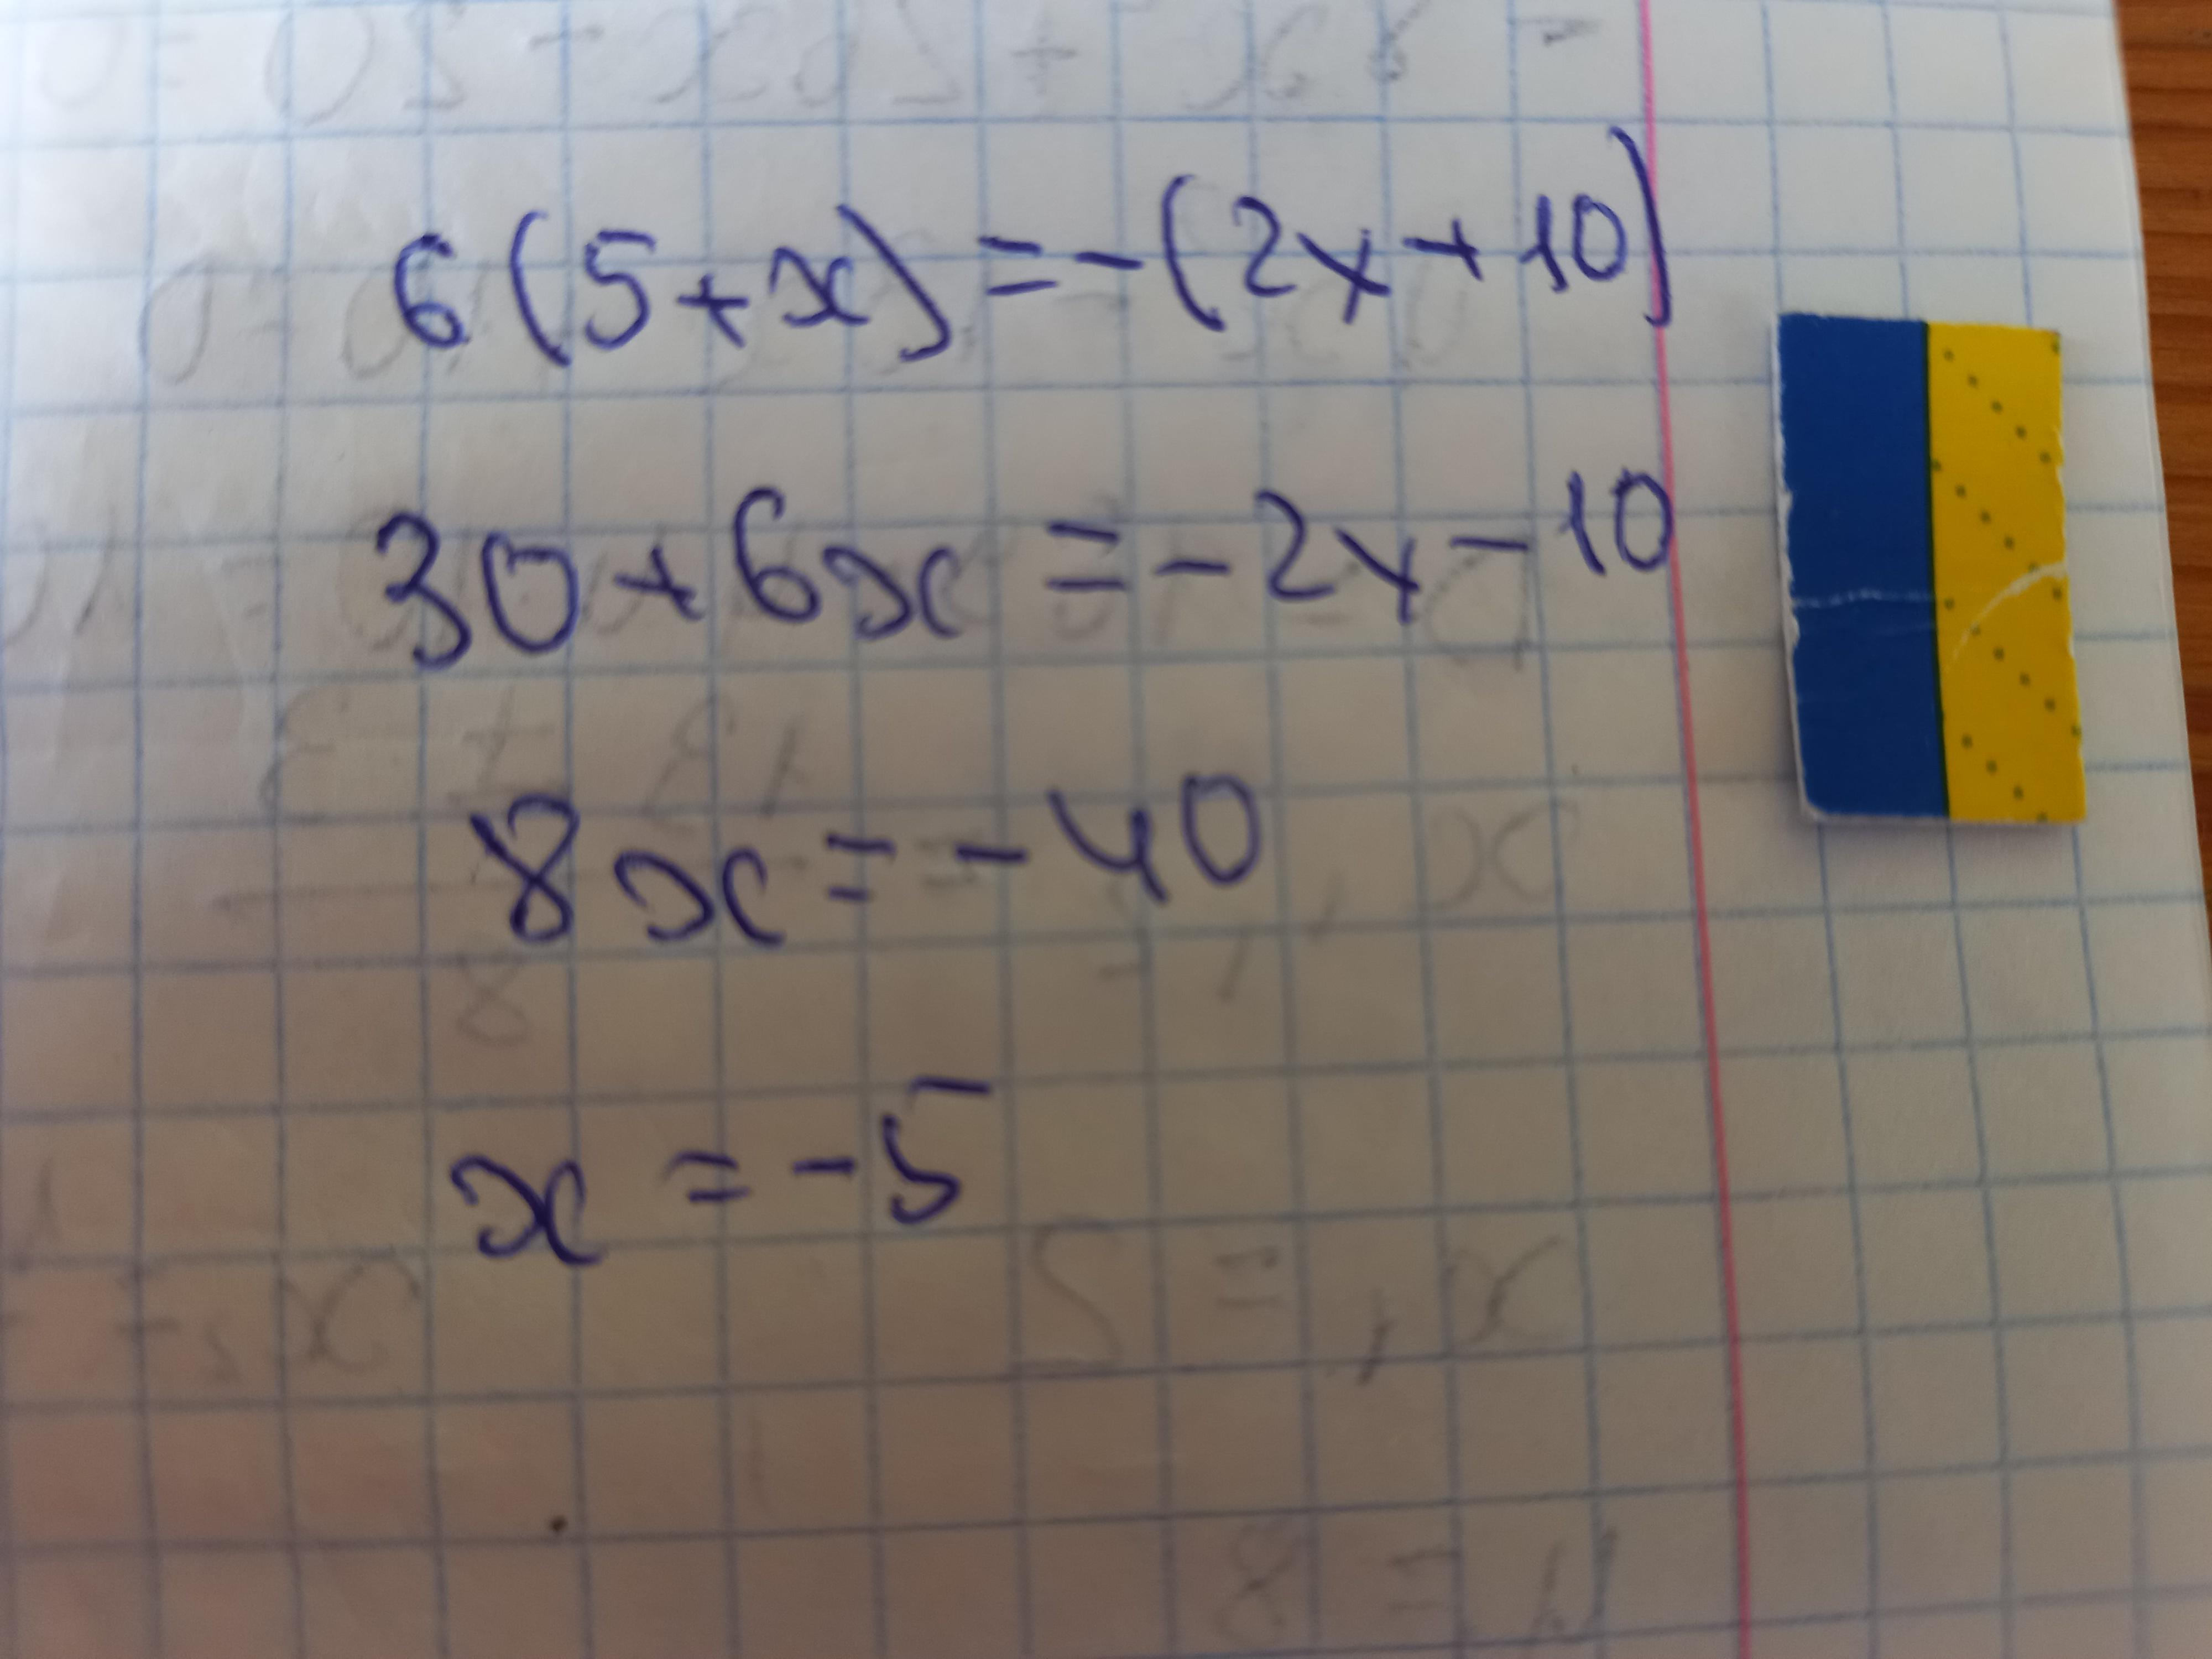 6(5+x)=-(2x+10)
30+6x=-2x-10
8x=-40
x=-5